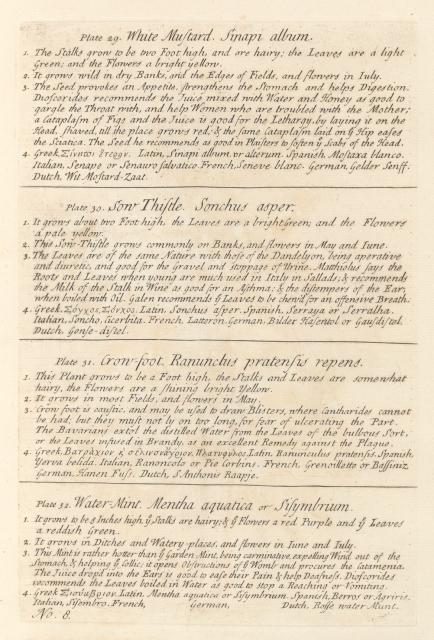 Plate 29. White Muſtard. Sinapi album.
1. The Stalks grow to be two Foot high, and are hairy; the Leaves are a light
Green; and the Flowers a bright yellow.
2. It grows wild in dry Banks, and the Edges of Fields, and flowers in Iuly.
3. The Seed provokes an Appetite, ſtrengthens the Stomach and helps Digeſtion.
Dioſcorides recommends the Juice mixed with Water and Honey as good to
gargle the Throat with, and help Women who are troubled with the Mother;
a Cataplaſm of Figs and the Juice is good for the Lethargy, by laying it on the
Head, ſhaved, till the place grows red; & the ſame Cataplaſm laid on ẙ Hip eaſes
the Sciatica. The Seed he recommends as good in Plaiſters to ſoften ẙ Scabs of the Head.
4. Greek, Latin, Sinapi album, vr alterum. Spanish, Moſtaza blanco.
Italian, Senape or Senauro ſalvatico. French, Seneve blanc. German, Gelder Senff.
Dutch, Wit Moſtard-Zaat.
Plate 30. Sow Thiſtle. Sonchus asper.
1. It grows about two Foot high, the Leaves are a bright Green; and the Flowers
a pale yellow.
2. This Sow-Thiſtle grows commonly on Banks, and flowers in May and Iune.
3. The Leaves are of the same Nature with thoſe of the Dandelyon, being aperative
and diuretic, and good for the gravel and stoppage of Urine. Matthiolus ſays the
Roots and Leaves when young are much used in Italy in Sallads; & recommends
the Milk of the Stalk in Wine as good for an Aſthma; & the diſtempers of the Ear;
when boiled with Oil. Galen recommends ẙ Leaves to be chew'd for an offensive Breath.
4. Greek, Σόγχος, Σόνχος. Latin, Sonchus aſper. Spanish, Serraya or Serralha.
Italian, Soncho, Cicerbita. French, Latteron. German, Bilder Haſentol or Gauſdiſtel.
Dutch, Genſe-diſtel.
Plate 31. Crow-foot. Ranunclus pratensis repens.
1. This Plant grows to be a Foot high, the Stalks and Leaves are somewhat
hairy, the Flowers are a ſhining bright Yellow.
2. It grows in most Fields, and flowers in May.
3. Crow foot is cauſtic, and may be used to draw Blisters, where Cantharides cannot
be had; but they muſt not ly on too long, for fear of ulcerating the Part.
The Bavarians extol the distilled Water from the Leaves of the bulbous Sort,
or the Leaves infused in Brandy, as an excellent Remedy against the Plague.
4. Greek, Latin, Ranunculus pratensis. Spanish,
Yerva belida. Italian, Ranoncolo or Pie Corbins. French, Grenoillette or Baſſiniz.
German, Hanen Fuſs. Dutch, S. Anthonis Raapje.
Plate 32. Water-Mint. Mentha aquatica or Siſymbrium.
1. It grows to be 8 Inches high, ẙ Stalks are hairy; & ẙ Flowers a red Purple and ẙ Leaves
a reddish Green.
2. It grows in Ditches and Watery-places, and flowers in Iune and Iuly.
3. This Mint is rather hotter than ẙ Garden-Mint, being carminative, expelling Wind out of the
Stomach, & helping ẙ Collic; it opens Obstructions of ẙ Womb and procures the Catamenia.
The Juice drop'd into the Ears is good to eaſe their Pain & help Deafneſs. Dioſcorides
recommends the Leaves boiled in Water as good to stop a Reaching or Vomiting.
4. Greek, Σισυμβριον. Latin, Mentha aquatica or Siſymbrium. Spanish, Berros or Agriris.
Italian, Siſembro. French, German, Dutch, Roſſe water Munt.
No. 8.